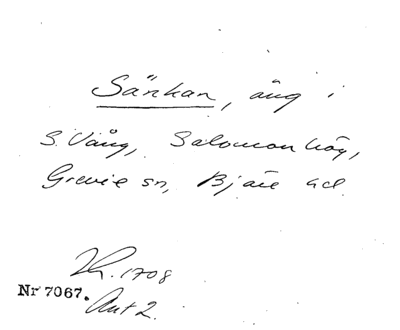 Sänkan, äng i
S. Vång, Salomonhög,
Grevie sn, Bjäre hd.
1708
Nr 7067.
Akt 2.